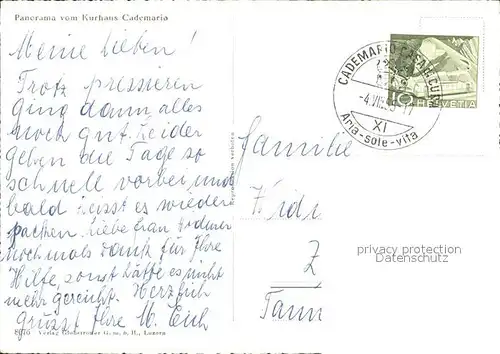 Panorama vom Kurhaus Cademario
Meine Lieben!
Trotz pressieren
ging dann alles
noch gut. Leider
gehen die Tage so
schnell vorbei und
bald heisst es wieder
packen. Liebe Frau
nochmals Dank für Ihre
Hilfe, sonst hätte es nicht
mehr gereicht. Herzlich
grüsst Ihre M. Eich
Verlag Globetrotter G. m. b. H., Luzern
Reproduktion verboten
CADEMARIO
10 HELVETIA
XI
Aria-sole-vita
Familie
Z
Tann
privacy protection
Datenschutz